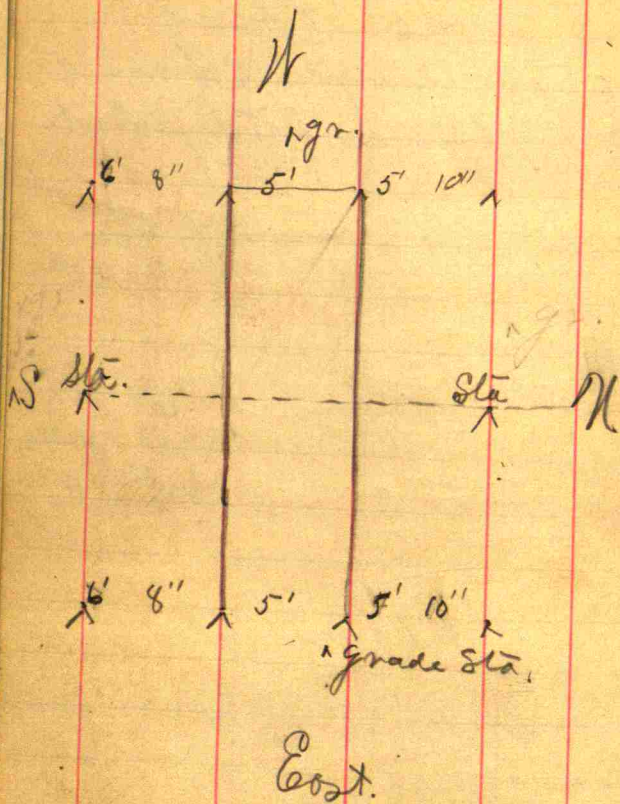 W
^ gr.
6' 8" 5' 5' 10"
^ gr.
S Sta. Sta N
6' 8" 5' 5' 10"
^ grade Sta.
East.